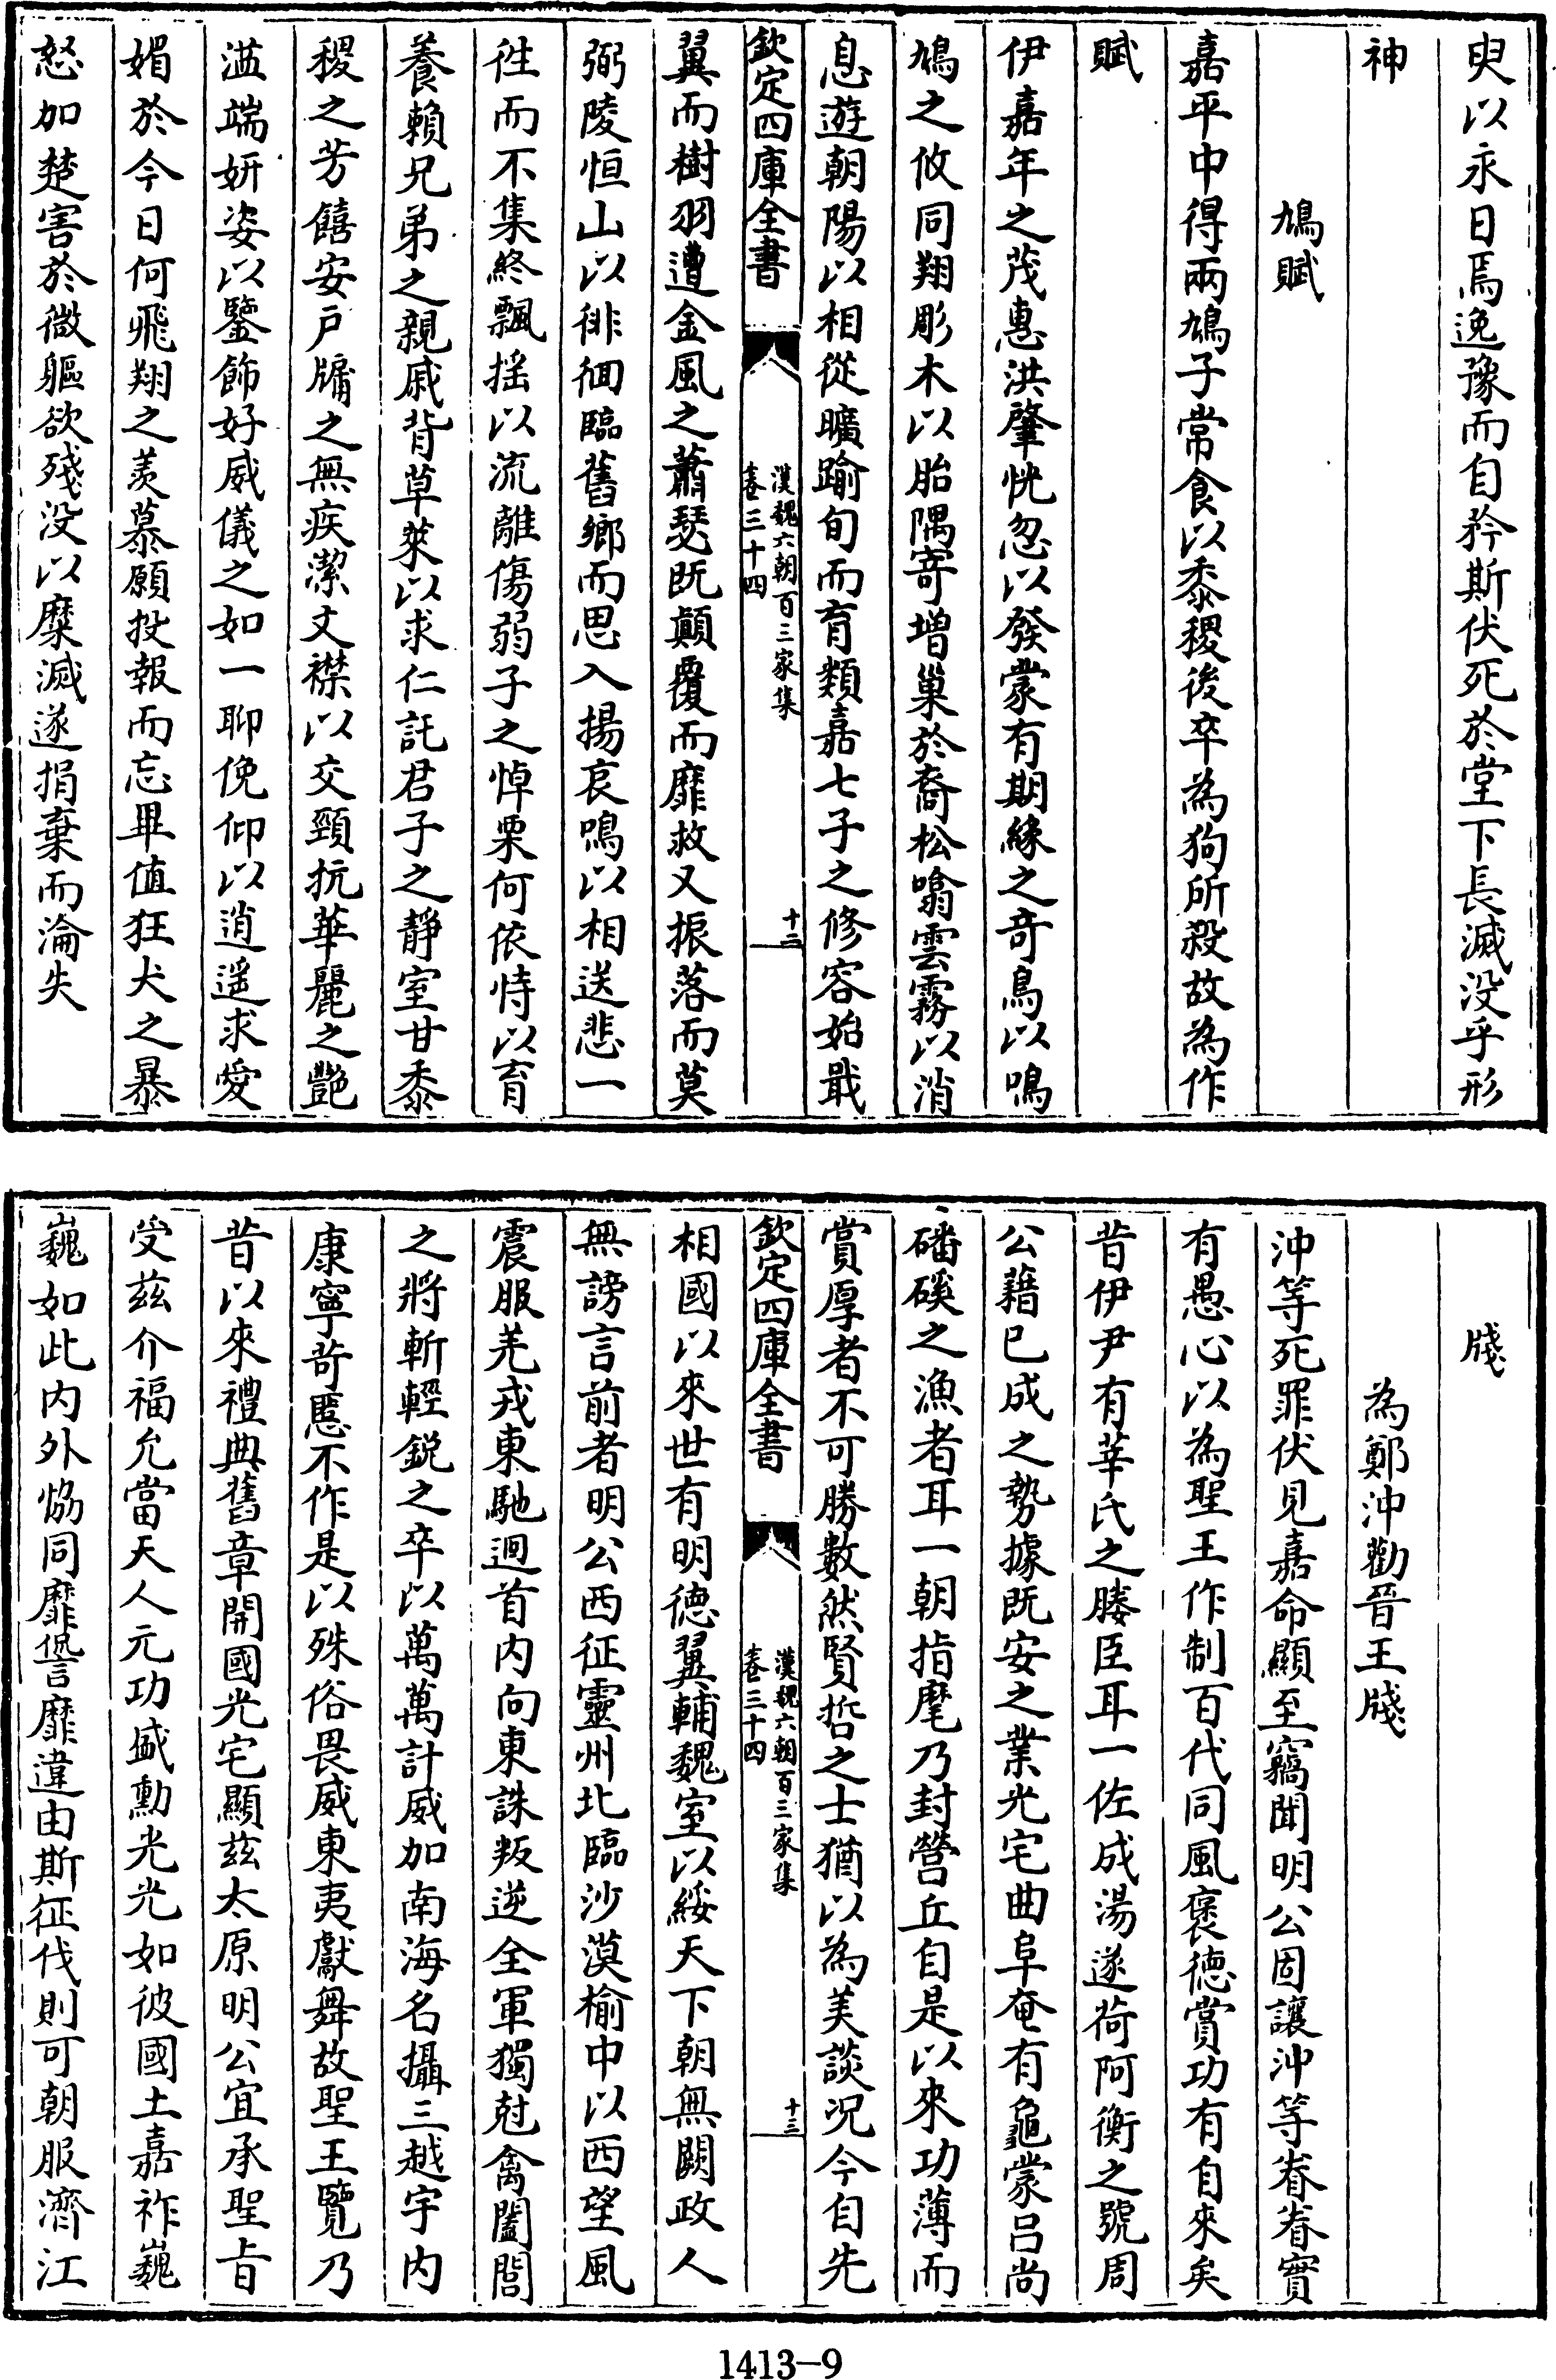 臾以永日焉逸豫而自矜斯伏死於堂下長滅没乎形
神
鳩賦
嘉平中得兩鳩子常食以黍稷後卒為狗所殺故為作
賦
伊嘉年之茂惠洪肇恍忽以發蒙有期緣之奇鳥以鳴
鳩之攸同翔彫木以胎隅寄增巢於裔松噏雲霧以消
息遊朝陽以相從曠踰旬而育類嘉七子之修容始戢
欽定四庫全書
漢魏六朝百三家集
卷三十四
十二
翼而樹羽遭金風之蕭瑟既顛覆而靡救又振落而莫
弼陵恒山以徘徊臨舊鄉而思入揚哀鳴以相送悲一
徃而不集終飄揺以流離傷弱子之悼栗何依恃以育
養賴兄弟之親戚背草萊以求仁託君子之靜室甘黍
稷之芳饎安戸牖之無疾潔文襟以交頸抗華麗之艶
溢端妍姿以鑒飾好威儀之如一聊俛仰以逍遥求愛
媚於今日何飛翔之羨慕願投報而忘畢值狂犬之暴
怒加楚害於微軀欲殘没以糜滅遂捐棄而淪失
牋
為鄭沖勸晉王牋
沖等死罪伏見嘉命顯至竊聞明公固讓沖等眷眷實
有愚心以為聖王作制百代同風褒徳賞功有自來矣
昔伊尹有莘氏之媵臣耳一佐成湯遂荷阿衡之號周
公藉已成之勢據既安之業光宅曲阜奄有龜蒙吕尚
磻磎之漁者耳一朝指麾乃封營丘自是以來功薄而
賞厚者不可勝數然賢哲之士猶以為美談况今自先
欽定四庫全書
漢魏六朝百三家集
卷三十四
十三
相國以來世有明徳翼輔魏室以綏天下朝無闕政人
無謗言前者明公西征靈州北臨沙漠榆中以西望風
震服羌戎東馳迴首内向東誅叛逆全軍獨尅禽闔閭
之將斬輕鋭之卒以萬萬計威加南海名攝三越宇内
康寧苛慝不作是以殊俗畏威東夷獻舞故聖王覽乃
昔以來禮典舊章開國光宅顯兹太原明公宜承聖㫖
受兹介福允當天人元功盛勳光光如彼國土嘉祚巍
巍如此内外恊同靡愆靡違由斯征伐則可朝服濟江
1413-9